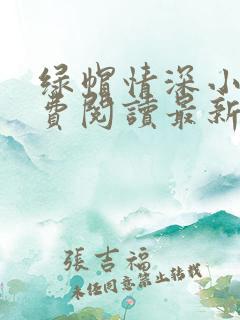 绿帽情深小
費閱讀最新
張吉福
未经同意禁止转载